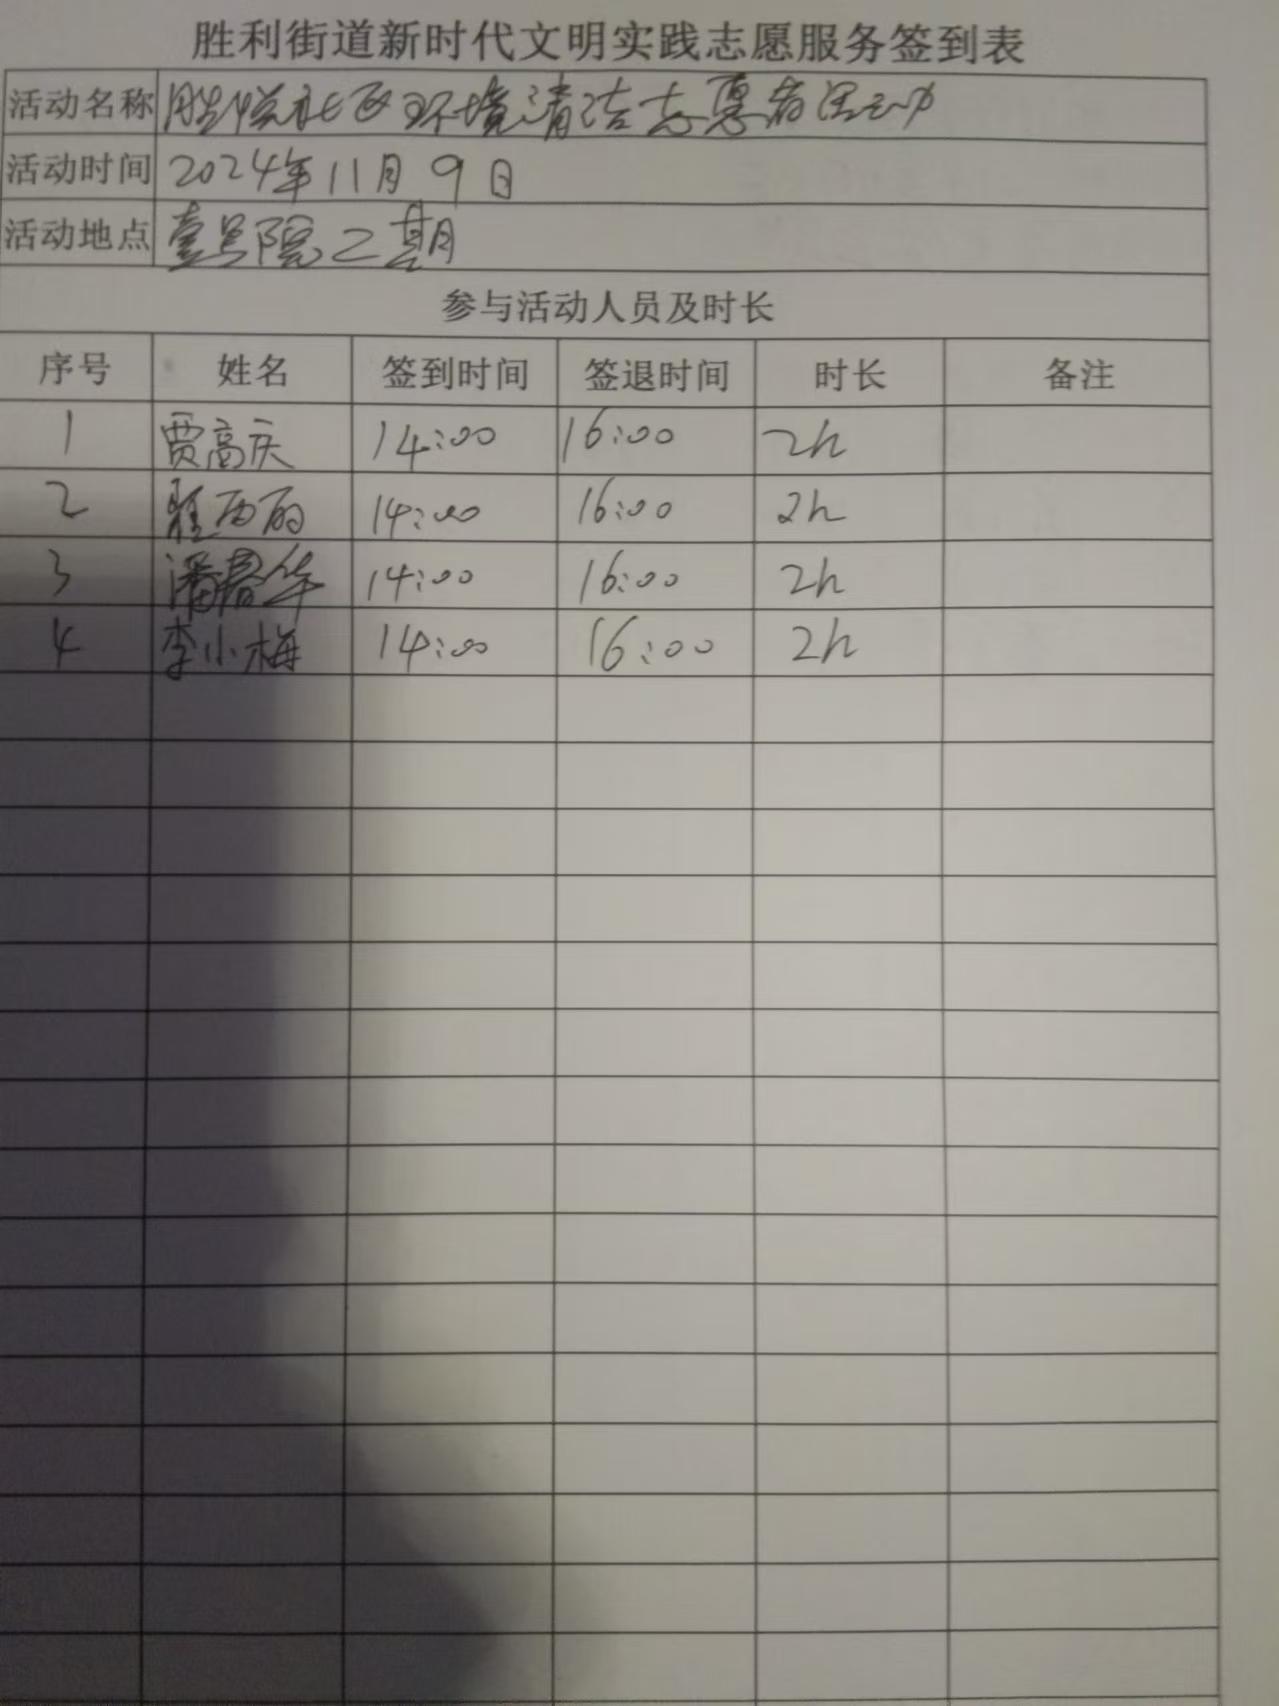 胜利街道新时代文明实践志愿服务签到表
活动名称 胜悦社区环境清洁志愿者活动
活动时间 2024年11月9日
活动地点 壹号院二期
参与活动人员及时长
序号 姓名 签到时间 签退时间 时长 备注
1 贾高庆 14:00 16:00 2h
2 14:00 16:00 2h
3 潘春华 14:00 16:00 2h
4 李小梅 14:00 16:00 2h